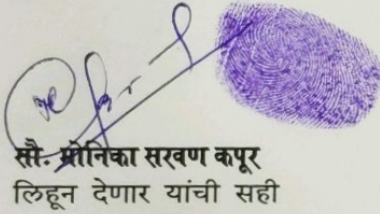 सौ. मोनिका सरवण कपूर
लिहून देणार यांची सही